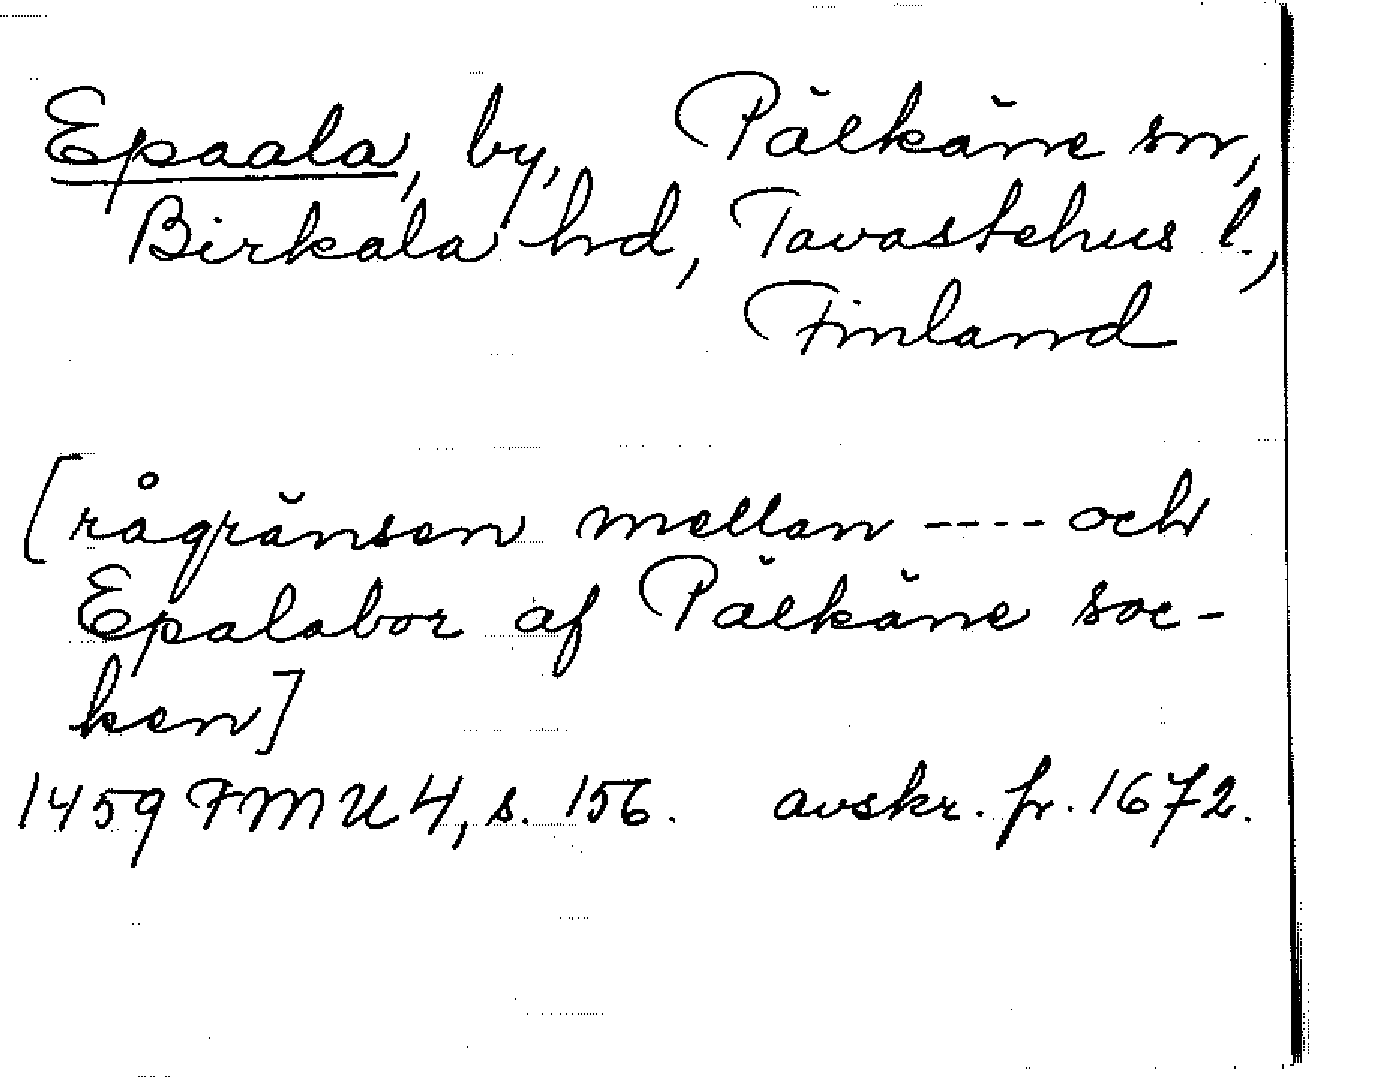 Epaala, by, Pälkäne sn,
Birkala hd, Tavastehus l.,
Finland
[rågränsen mellan ---- och
Epalabor af Pälkäne soc-
ken]
1459 FMU 4, s. 156. avskr. fr. 1672.